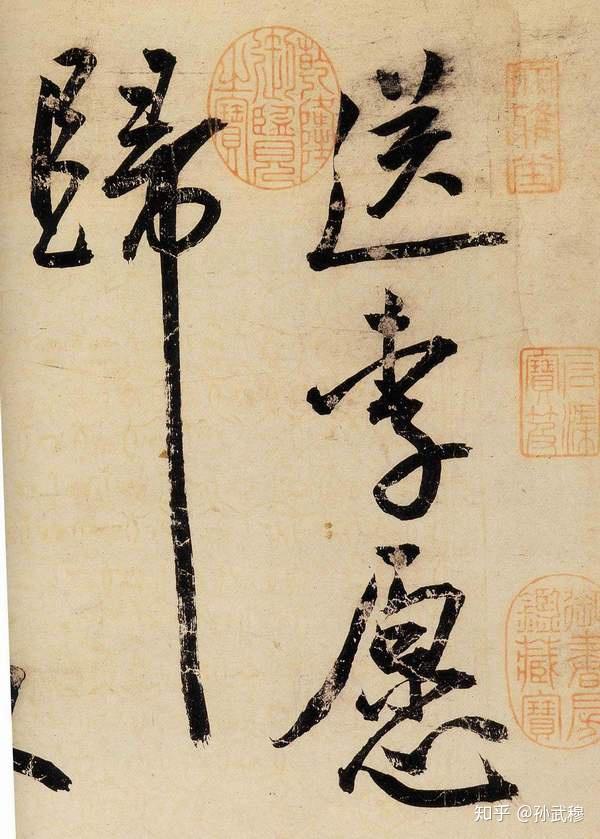 送李愿
歸
乾隆御覽之寶
石渠寶笈
御書房鑑藏寶
知乎 @孙武穆